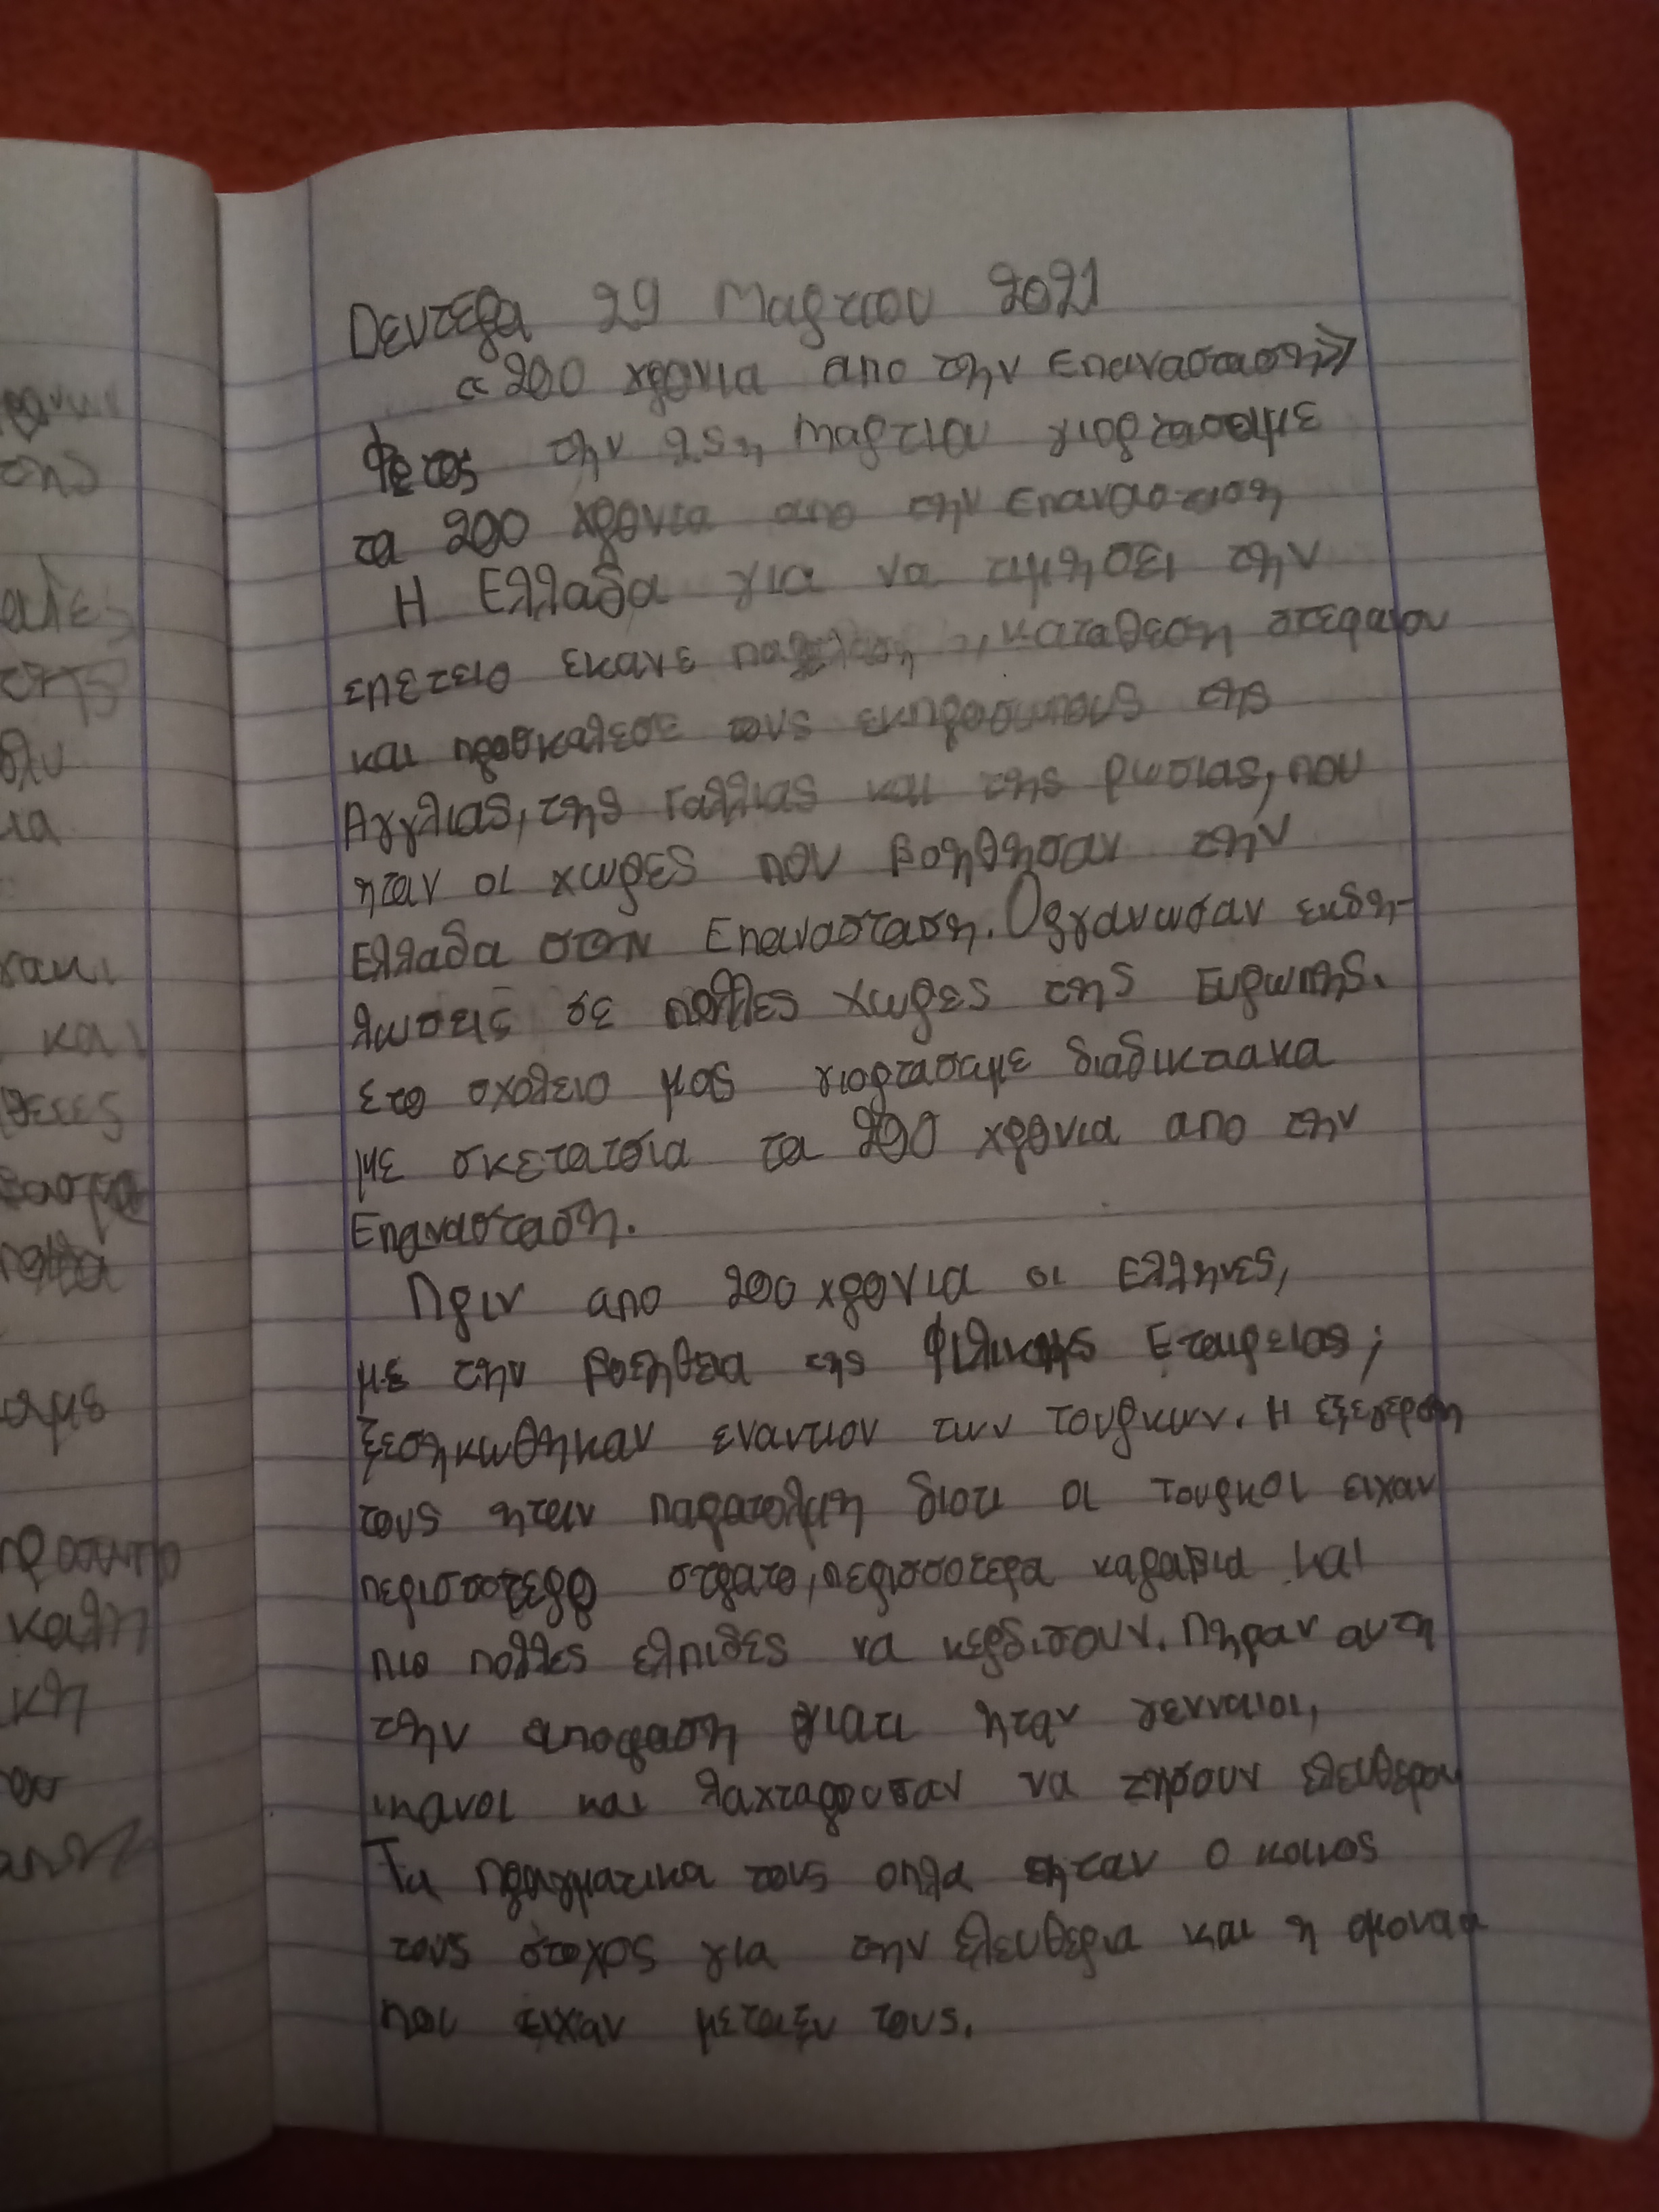 Δευτερα 29 Μαρτιου 2021
«200 χρονια απο την Επανασταση»
Φετος την 25η Μαρτιου γιορτασαμε
τα 200 χρονια απο την Επανασταση
Η Ελλαδα για να τιμησει την
επετειο εκανε παρελαση, καταθεση στεφανου
και προσκαλεσε τους εκπροσωπους της
Αγγλιας, της Γαλλιας και της Ρωσιας, που
ηταν οι χωρες που βοηθησαν την
Ελλαδα στην Επανασταση. Οργανωσαν εκδη-
λωσεις σε πολλες χωρες της Ευρωπης.
Στο σχολειο μας γιορτασαμε διαδικτιακα
με σκετατσια τα 200 χρονια απο την
Επανασταση.
Πριν απο 200 χρονια οι Ελληνες,
με την βοηθεια της Φιλικης Εταιρειας,
ξεσηκωθηκαν εναντιον των τουρκων. Η εξεγερση
τους ηταν παρατολμη διοτι οι τουρκοι ειχαν
περισσοτερο στρατο, περισσοτερα καραβια και
πιο πολλες ελπιδες να κερδισουν. Πηραν αυτη
την αποφαση γιατι ηταν γενναιοι,
ικανοι και λαχταρουσαν να ζησουν ελευθεροι
Τα πραγματικα τους οπλα ηταν ο κοινος
τους στοχος για την ελευθερια και η ομονοια
που ειχαν μεταξυ τους.